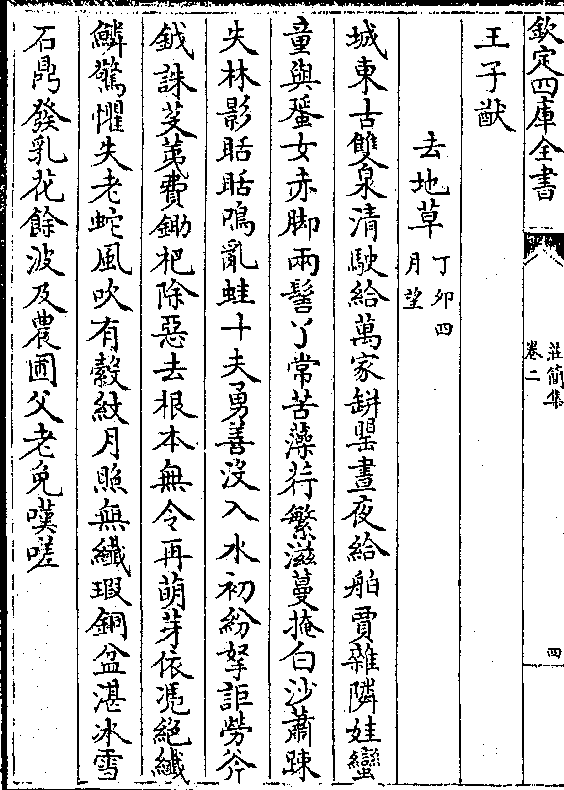 欽定四庫全書
莊簡集
卷二
四
王子猷
去地草丁卯四
月望
城東古雙泉清駛給萬家缾罌晝夜給舶賈雜隣娃蠻
童與蜑女赤脚兩髻丫常苦藻荇繁滋蔓掩白沙蕭踈
失林影聒聒鳴亂蛙十夫勇善没入水初紛拏詎勞斧
鉞誅芟荑費鋤杷除惡去根本無令再萌芽依憑絕纖
鱗驚懼失老蛇風吹有縠紋月照無纖瑕銅盆湛冰雪
石鼎發乳花餘波及農圃父老免嘆嗟